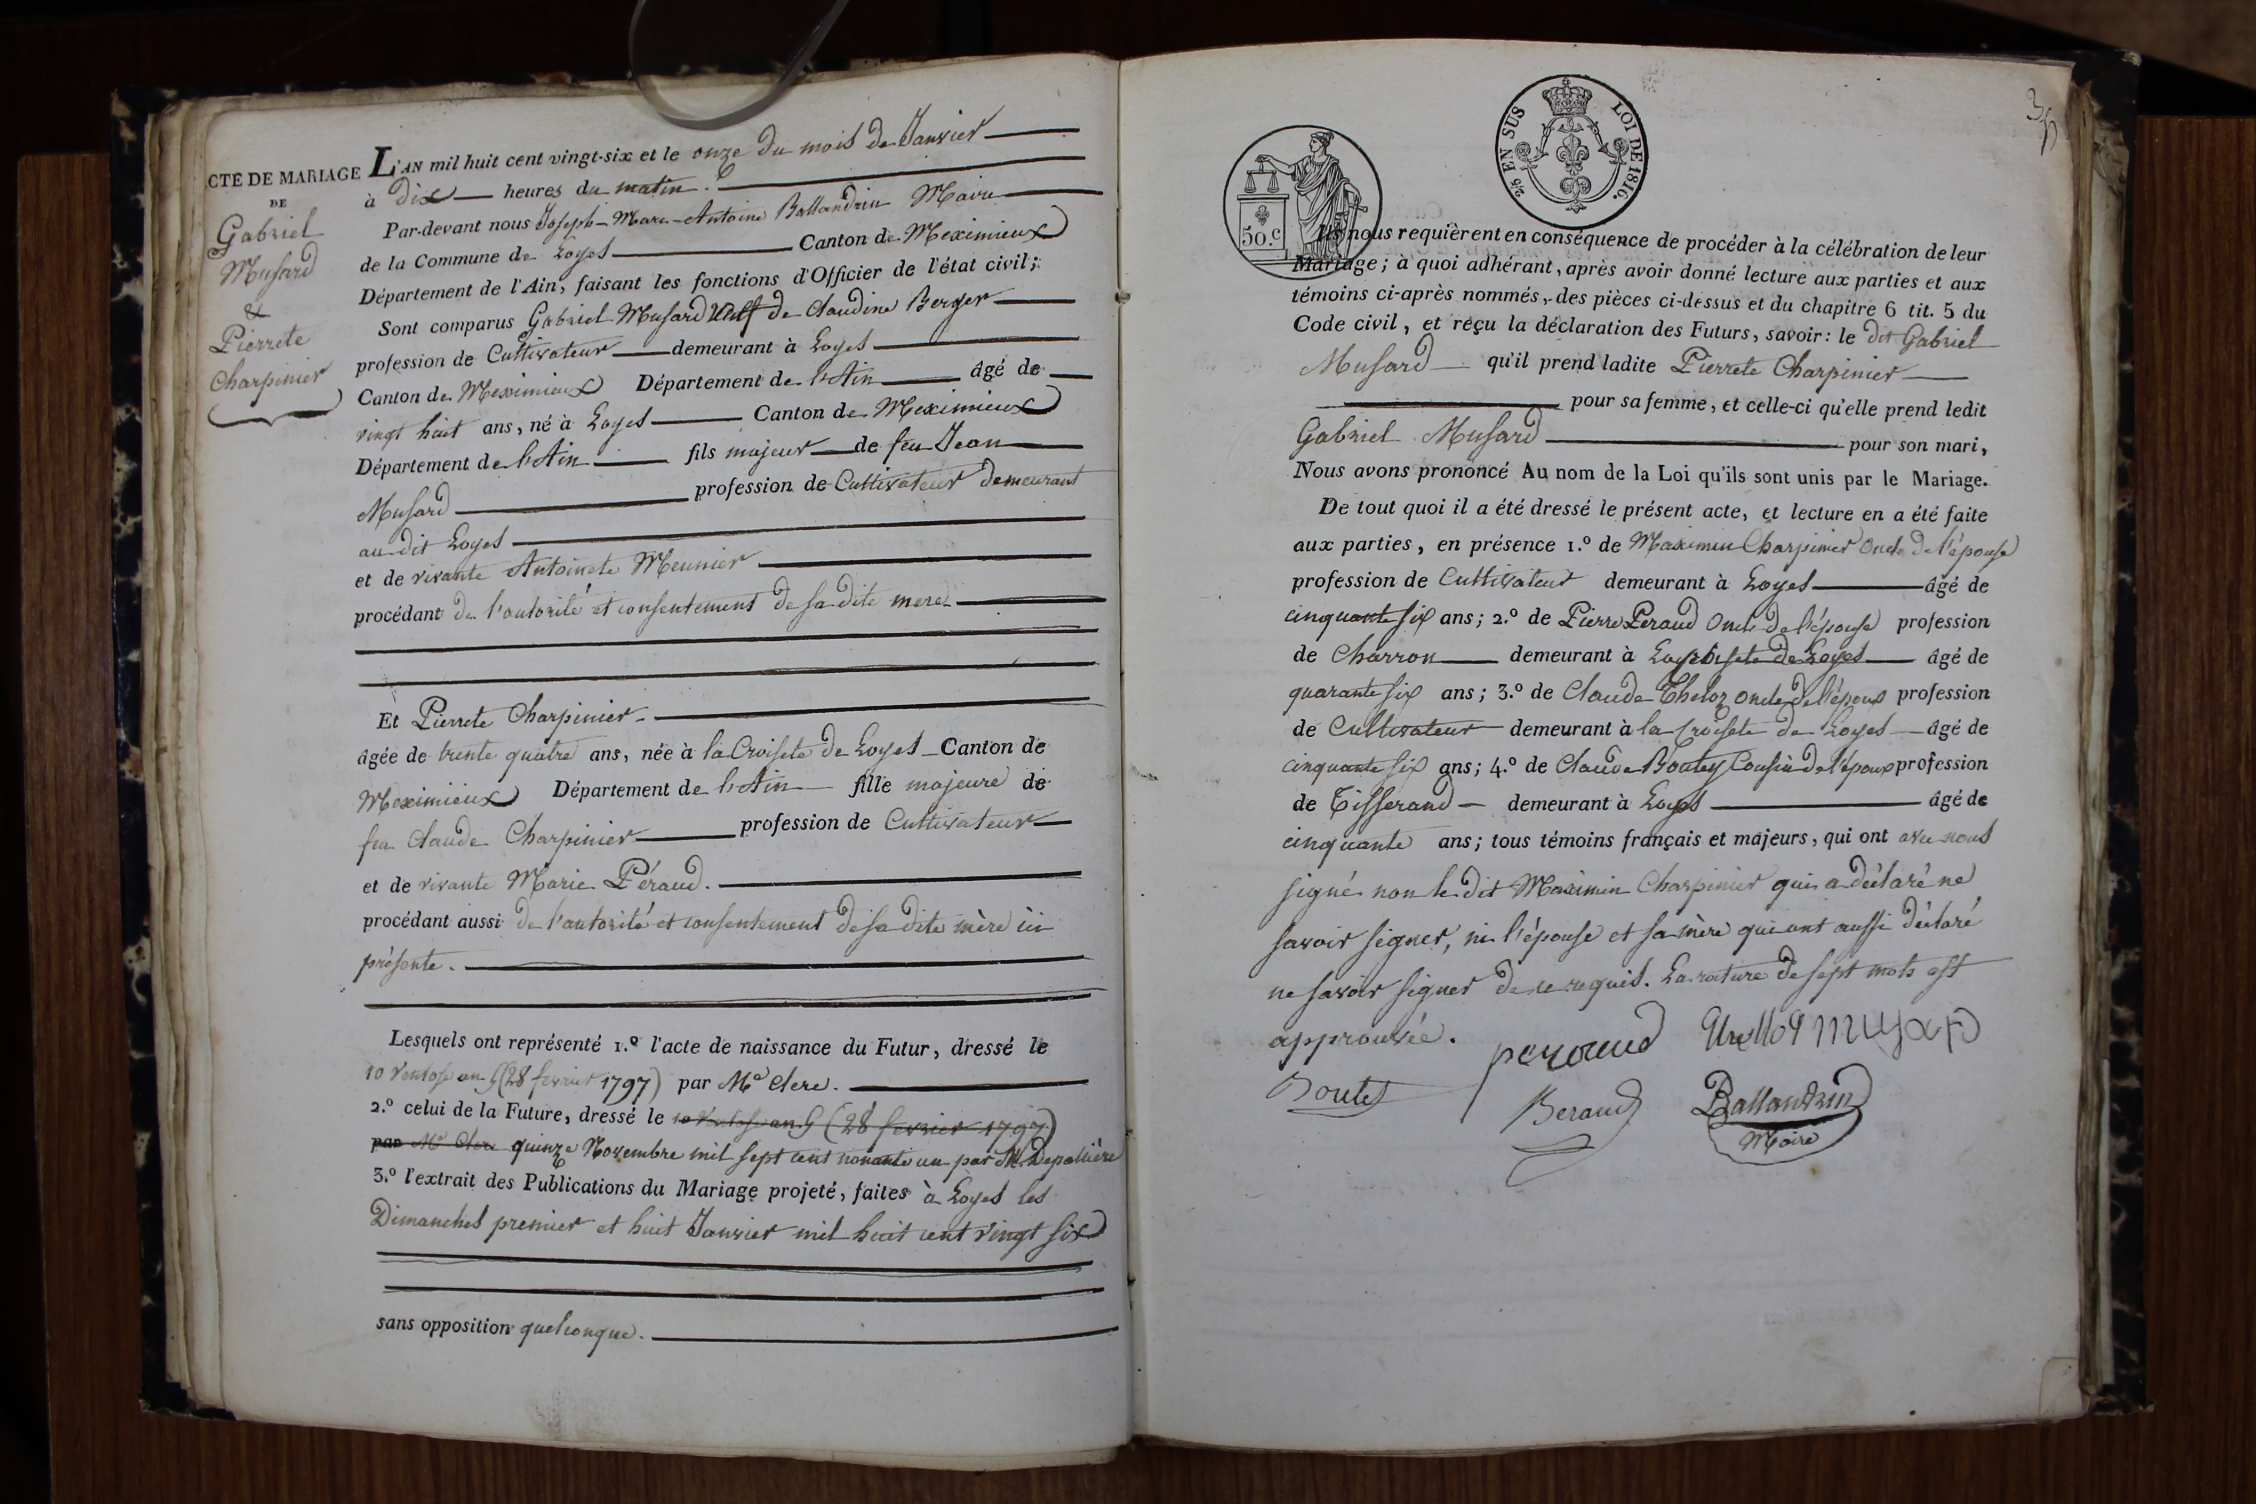 CTE DE MARIAGE
DE
Gabriel
Musard
&
Pierrete
Charpinier
L'AN mil huit cent vingt-six et le onze du mois de Janvier
à dix heures du matin.
Par-devant nous Joseph-Marc-Antoine Ballandrin Maire
de la Commune de Loyes Canton de Meximieux
Département de l'Ain, faisant les fonctions d'Officier de l'état civil;
Sont comparus Gabriel Musard veuf de Claudine Berger
profession de Cultivateur demeurant à Loyes
Canton de Meximieux Département de l'Ain âgé de
vingt huit ans, né à Loyes Canton de Meximieux
Département de l'Ain fils majeur de feu Jean
Musard profession de Cultivateur demeurant
au dit Loyes
et de vivante Antoinete Meunier
procédant de l'autorité et consentement de sa dite mere
Et Pierrete Charpinier
âgée de trente quatre ans, née à la Croisete de Loyes Canton de
Meximieux Département de l'Ain fille majeure de
feu Claude Charpinier profession de Cultivateur
et de vivante Marie Péraud.
procédant aussi de l'autorité et consentement de sa dite mère ici
présente.
Lesquels ont représenté 1.º l'acte de naissance du Futur, dressé le
10 Ventose an 5 (28 fevrier 1797) par Me Clerc.
2.º celui de la Future, dressé le 10 Ventose an 5 (28 fevrier 1797)
par Me Clerc quinze Novembre mil sept cent nonante un par M. Depallière
3.º l'extrait des Publications du Mariage projeté, faites à Loyes les
Dimanches premier et huit Janvier mil huit cent vingt six
sans opposition quelconque.
35
2/5 EN SUS LOI DE 1816.
50.c
Ils nous requièrent en conséquence de procéder à la célébration de leur
Mariage; à quoi adhérant, après avoir donné lecture aux parties et aux
témoins ci-après nommés, des pièces ci-dessus et du chapitre 6 tit. 5 du
Code civil, et reçu la déclaration des Futurs, savoir: le dit Gabriel
Musard qu'il prend ladite Pierrete Charpinier
pour sa femme, et celle-ci qu'elle prend ledit
Gabriel Musard pour son mari,
Nous avons prononcé Au nom de la Loi qu'ils sont unis par le Mariage.
De tout quoi il a été dressé le présent acte, et lecture en a été faite
aux parties, en présence 1.º de Maximin Charpinier oncle de l'épouse
profession de Cultivateur demeurant à Loyes âgé de
cinquante six ans; 2.º de Pierre Péraud oncle de l'épouse profession
de Charron demeurant à de Loyes âgé de
quarante six ans; 3.º de Claude Theloz oncle de l'époux profession
de Cultivateur demeurant à la Croisete de Loyes âgé de
cinquante six ans; 4.º de Claude Boutey Cousin de l'époux profession
de Tisserand demeurant à Loyes âgé de
cinquante ans; tous témoins français et majeurs, qui ont avec nous
signé non le dit Maximin Charpinier qui a déclaré ne
savoir signer, ni l'épouse et sa mère qui ont aussi déclaré
ne savoir signer de ce requis. La rature de sept mots est
approuvée.
peroud musard
Boutey
Beraud Ballandrin
Maire